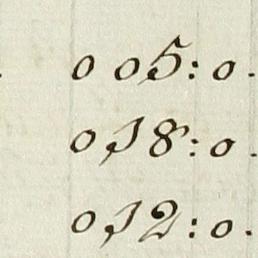 0 05:0.
0 18:0.
0 12:0.